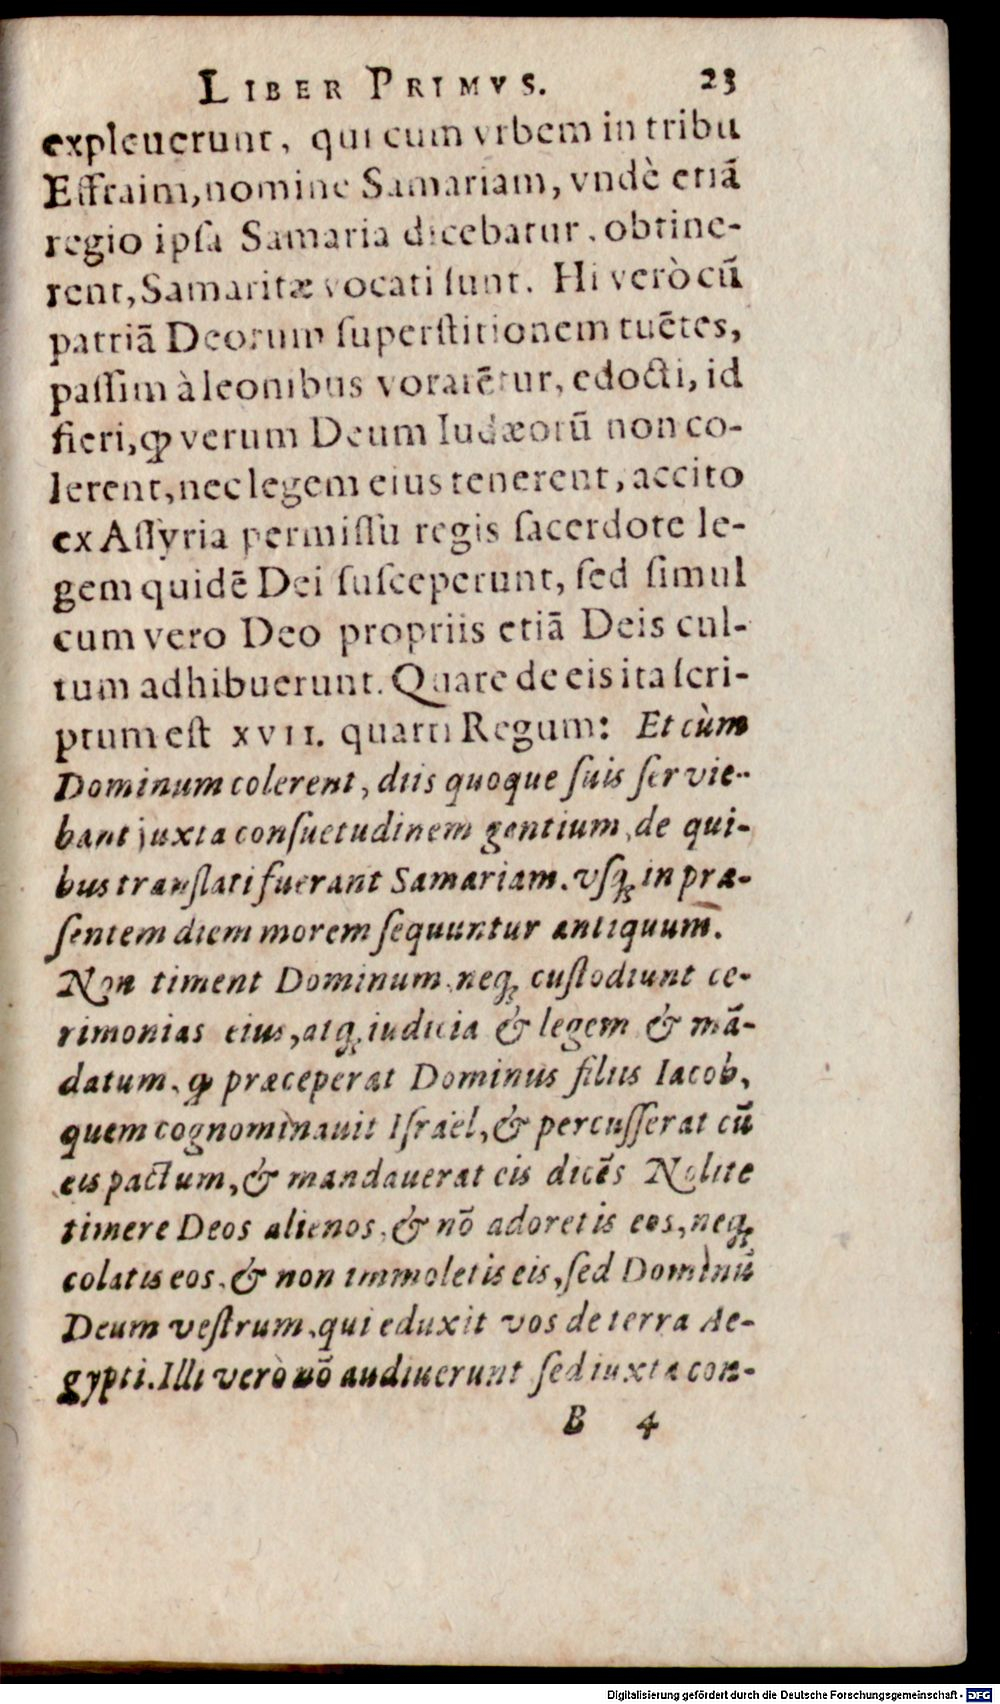 LIBER PRIMVS. 23
expleuerunt, qui cum vrbem in tribu
Effraim, nomine Samariam, vndè etiã
regio ipſa Samaria dicebatur, obtine-
rent, Samaritæ vocati ſunt. Hi verò cũ
patriã Deorum ſuperſtitionem tuẽtes,
paſſim à leonibus vorarẽtur, edocti, id
fieri, ꝙ verum Deum Iudæorũ non co-
lerent, nec legem eius tenerent, accito
ex Aſſyria permiſſu regis ſacerdote le-
gem quidẽ Dei ſuſceperunt, ſed ſimul
cum vero Deo propriis etiã Deis cul-
tum adhibuerunt. Quare de eis ita ſcri-
ptum eſt XVII. quarti Regum: Et cùm
Dominum colerent, diis quoque ſuis ſervie-
bant juxta conſuetudinem gentium, de qui-
bus tranſlati fuerant Samariam. vſq; in præ-
ſentem diem morem ſequuntur antiquum.
Non timent Dominum, neq; cuſtodiunt ce-
rimonias eius, atq; iudicia & legem & mã-
datum, ꝙ præceperat Dominus filiis Iacob,
quem cognominauit Iſraèl, & percuſſerat cũ
eis pactum, & mandauerat eis dicẽs Nolite
timere Deos alienos, & nõ adoretis eos, neq;
colatis eos, & non immoletis eis, ſed Dominũ
Deum veſtrum, qui eduxit vos de terra Ae-
gypti. Illi verò nõ audiuerunt ſed iuxta con-
B 4
Digitalisierung gefördert durch die Deutsche Forschungsgemeinschaft - DFG